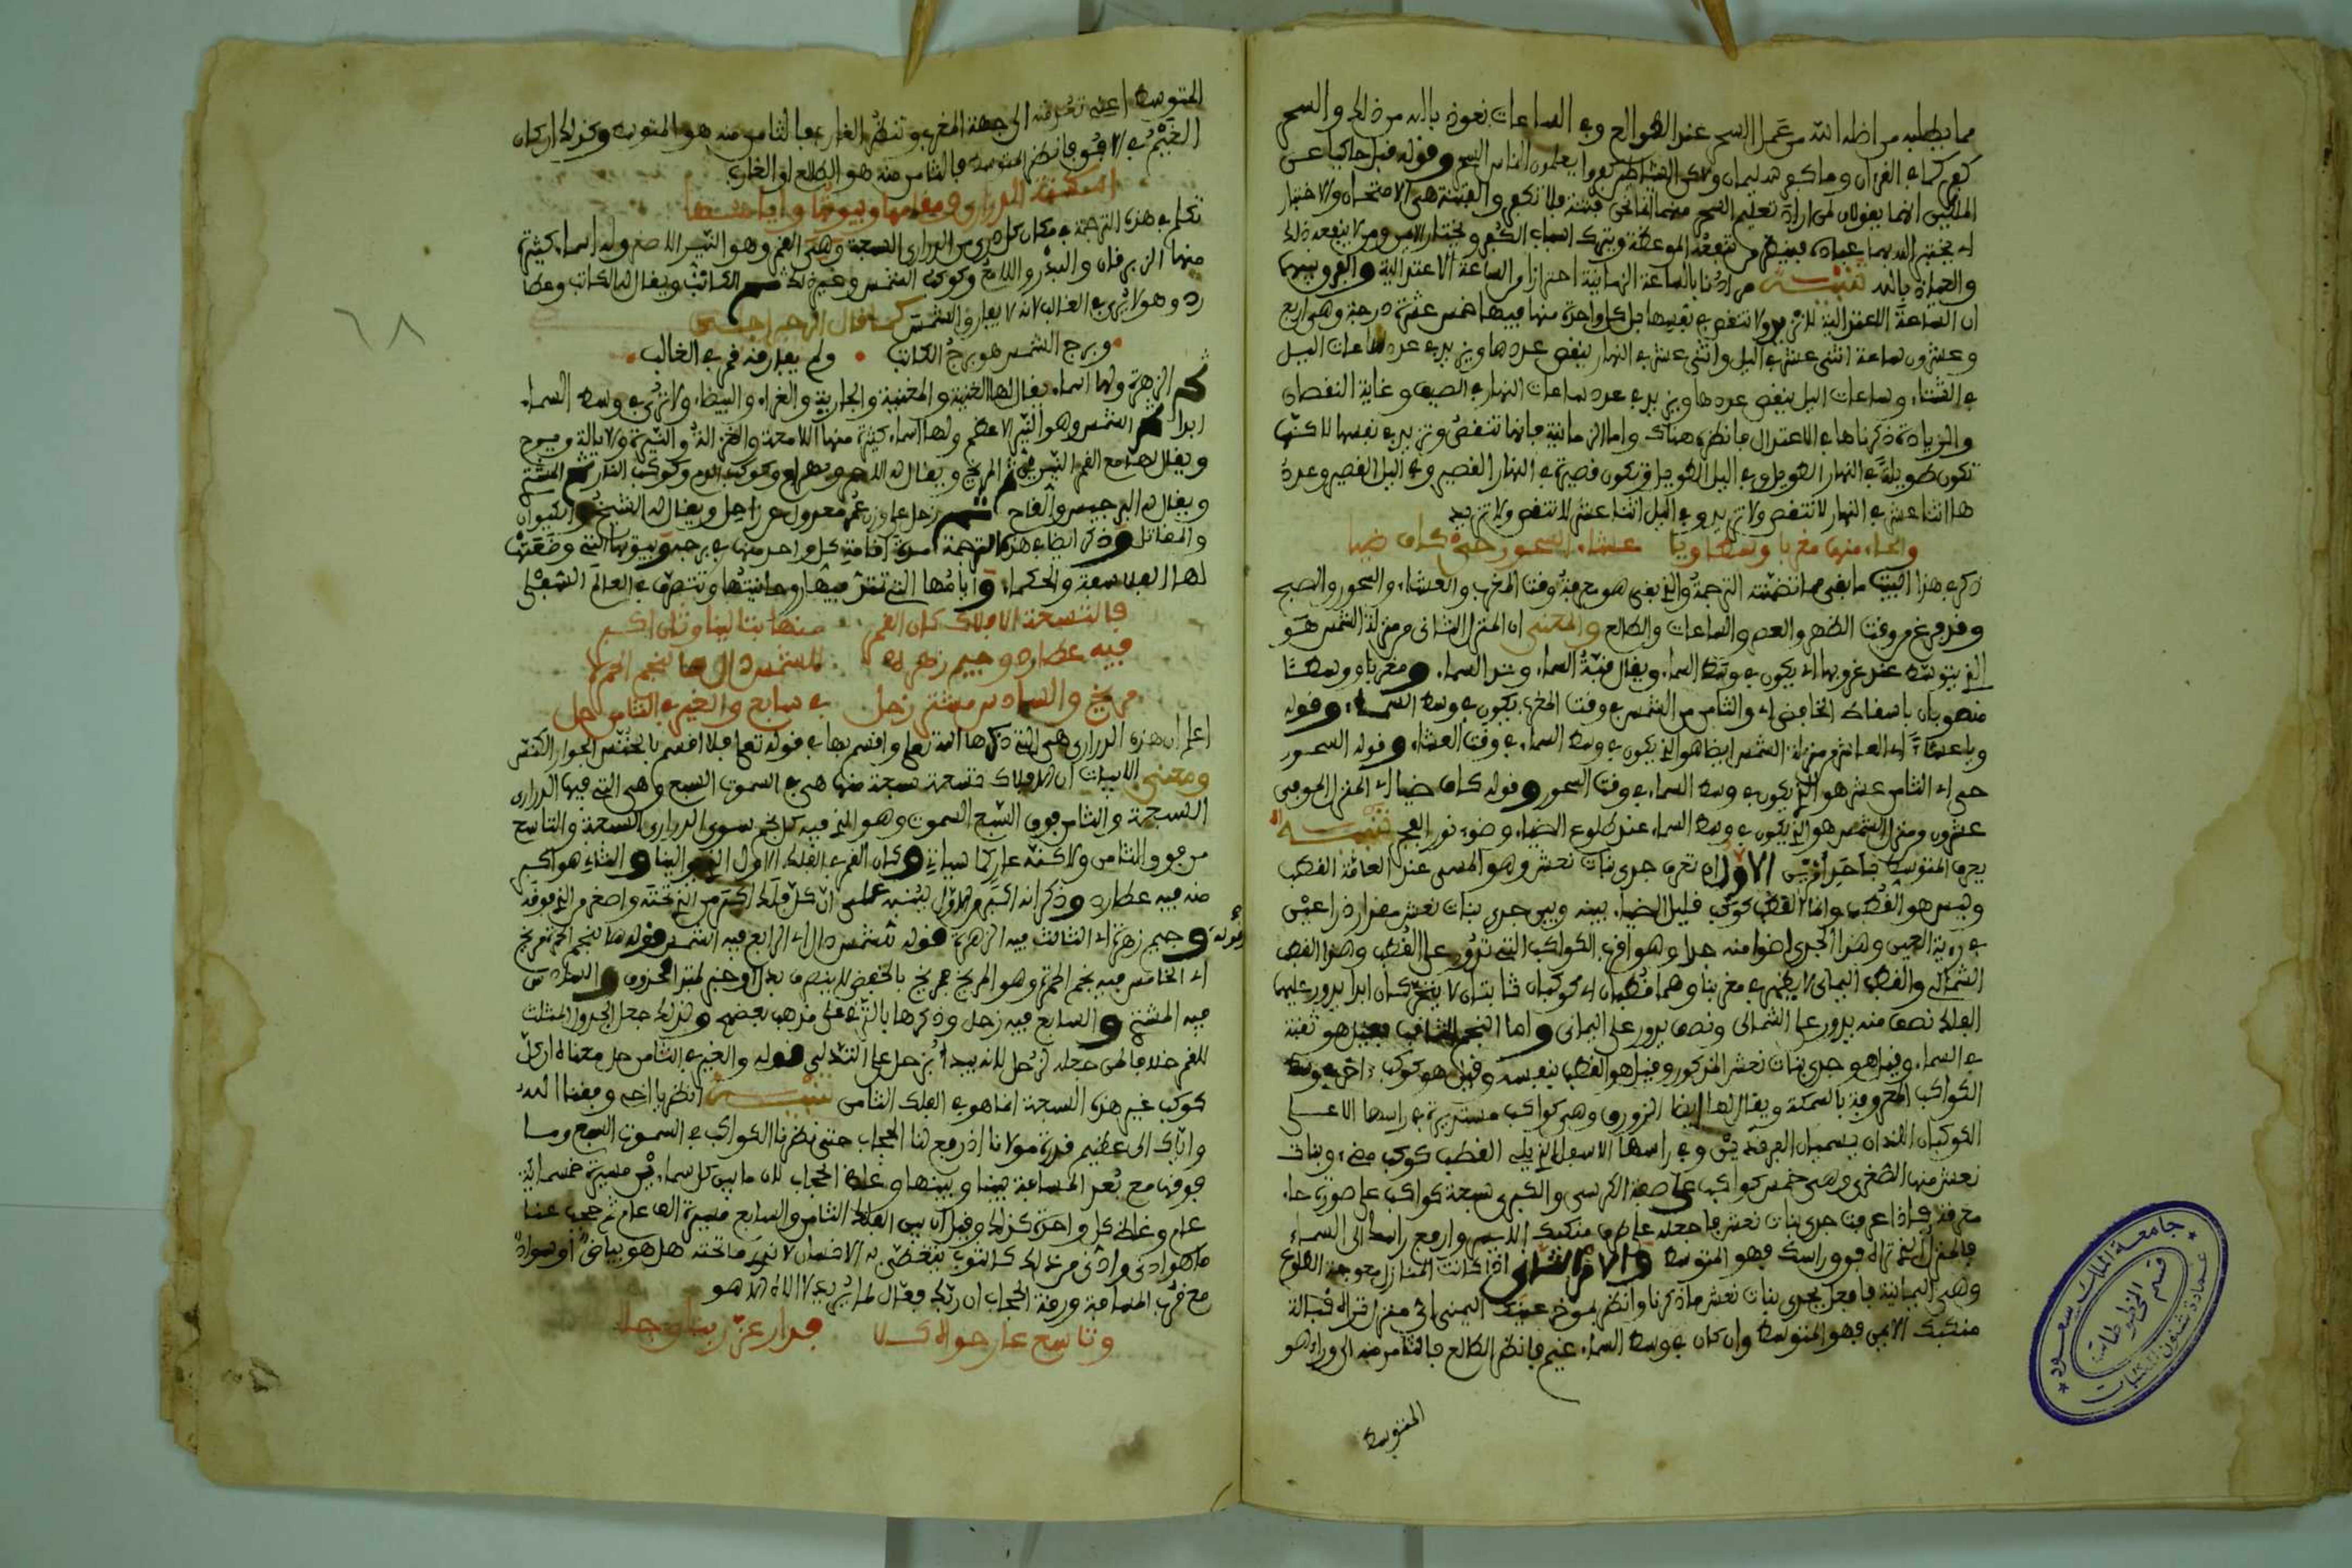 مما يبطله من اظله الله من عمل السحر عند الطوالع وفي الساعات نعوذ بالله من ذلك والسحر
كفر كما في القرءان وما كفر سليمان ولاكن الشياطين كفروا يعلمون الناس السحر وقوله قبل حاكيا عن
الملكين انما يقولان لمن اراد تعليم السحر منهما انما نحن فتنة فلا تكفر والفتنة هي الامتحان والاختبار
اي يختبر الله بهما عباده فينظر من تنفعه الموعظة ويترك اسباب الكفر ويختار الايمن ومن لا ينفعه ذلك
والعياذ بالله تنبيه مرادنا بالساعة الزمانية احترازا من الساعة الاعتدالية والفرق بينهما
ان الساعة الاعتدالية لا تزيد ولا تنقص في نفسها بل كل واحدة منها فيها خمس عشرة درجة وهي اربع
وعشرون ساعة اثنى عشر في اليل واثنى عشر في النهار ينقص عددها ويزيد في عدد ساعات اليل
في الشتاء وساعات اليل ينقص عددها ويزيد في عدد ساعات النهار في الصيف وغاية النقصان
والزيادة ذكرناها في الاعتدال فانظره هناك واما الزمانية فانها تنقص وتزيد في نفسها لاكنها
تكون طويلة في النهار الطويل وفي اليل الطويل وتكون قصيرة في النهار القصير وفي اليل القصير وعدد
ها اثنا عشر في النهار لا تنقص ولا تزيد وفي اليل اثنا عشر لا تنقص ولا تزيد
والحاء منها مغربا وسطا ويا عشاء السحور حي كاف ضيا
ذكر في هذا البيت ما بقي مما تضمنته الترجمة والذي بقي هو معرفة وقت المغرب والعشاء والسحور والصبح
وقد فرغ من وقت الظهر والعصر والساعات والطالع والمعنى ان المنزل الثاني من منزلة الشمس هو
الذي يتوسط عند غروبها اي يكون في وسط السماء ويقال قبة السماء وتد السماء ومغربا ووسطا
منصوبان باسقاط الخافض اي والثامن من الشمس في وقت المغرب يكون في وسط السماء وقوله
ويا عشاء اي الحادي عشر من منزلة الشمس ايضا هو الذي يكون في وسط السماء في وقت العشاء وقوله السحور
حي اي الثامن عشر هو الذي يكون في وسط السماء في وقت السحور وقوله كاف ضيا اي المنزل الموفي
عشرون من منزل الشمس هو الذي يكون في وسط السماء عند طلوع الضياء وضوء نور الفجر تنبيه
يعرف المتوسط باحد امرين الاول ان تعرف جدي بنات نعش وهو المسمى عند العامة القطب
وليس هو القطب وانما القطب كوكب قليل الضياء بينه وبين جدي بنات نعش مقدار ذراعين
في رءية العين وهذا الجدي اضوا منه جدا وهو اقرب الكواكب التي تدور على القطب وهذا القطب
الشمالي والقطب اليماني لا يظهر في مغربنا وهما قطبان اي كوكبان ثابتان لا يتحركان ابدا يدور عليهما
الفلك نصف منه يدور على الشمالي ونصف يدور على اليماني واما النجم الثاقب فقيل هو ثقبة
في السماء وقيل هو جدي بنات نعش المذكور وقيل هو القطب بنفسه وقيل هو كوكب ءاخر في وسط
الكواكب المعروفة بالسمكة ويقال لها ايضا الزورق وهي كواكب مستديرة في راسها الاعلى
الكوكبان اللذان يسميان الفرقدين وفي راسها الاسفل الذي يلي القطب كوكب مضيء وبنات
نعش منها الصغرى وهي خمس كواكب على صفة الكرسي والكبرى سبعة كواكب على صورة حاء
معرفة فاذا عرفت جدي بنات نعش فاجعله على طرف منكبك الايسر وارفع راسك الى السماء
فالمنزل الذي تراه فوق راسك فهو المتوسط والامر الثاني اذا كانت المنازل معوجة الطلوع
وهي اليمانية فافعل بجدي بنات نعش ماذكرنا وانظر بمؤخر عينك اليمنى اي منزل تراه قبالة
منكبك الايمن فهو المتوسط وان كان في وسط السماء غيم فانظر الطالع فالثامن منه الى ورائه هو
المتوسط
المتوسط اعني تعرفته الى جهة المغرب وتنظر الغارب فالثامن منه هو المتوسط وكذلك ان كان
الغيم في الافق فانظر المتوسط فالثامن منه هو الطالع او الغارب
امكنة الدراري ومقامها وبيوتها وايامها
تكلم في هذه الترجمة في مكان كل دري من الدراري السبعة وهي القمر وهو النير الاصغر وله اسماء كثيرة
منها الزبرقان والبدر واللامع وكوكب الشمس وغير ذلك ثم الكاتب ويقال له الكاتب وعطا
رد وهو لا يرى في الغالب لانه لا يفارق الشمس كما قال الزجراجي
وبرج الشمس هو برج الكاتب ولم يفارقه قمر في الغالب
ثم الزهرة ولها اسماء يقال لها القينة والمغنية والجارية والغراء والبيضاء ولا ترى في وسط السماء
ابدا ثم الشمس وهو النير الاعظم ولها اسماء كثيرة منها اللامعة والغزالة والنيرة والايالة ويوح
ويقال لها مع القمر النيرين ثم المريخ ويقال له الاحمر وبهرام وكوكب الدم وكوكب النار ثم المشتر
ويقال له البرجيس والقاح ثم زحل على وزن عمر معدول عن زاحل ويقال له الشيخ وكيوان
والمقاتل وذكر ايضا في هذه الترجمة مدة اقامة كل واحد منها في برجه وبيوتها التي وضعتها
لها الفلاسفة والحكماء وايامها التي تنزل فيها روحانيتها وتتصرف في العالم السفلي
فالتسعة الافلاك كان القمر منها بتالينا وثان اكبر
فيه عطارد وجيم زهره للشمس دال ها لنجم الحمره
مريخ والسادس مشتر زحل في سابع والغير في الثامن حل
اعلم ان هذه الدراري هي التي ذكرها الله تعلى واقسم بها في قوله تعلى فلا اقسم بالخنس الجوار الكنس
ومعنى الابيات ان الافلاك تسعة سبعة منها هي في السموت السبع وهي التي فيها الدراري
السبعة والثامن فوق السبع السموت وهو الذي فيه كل نجم سوى الدراري السبعة والتاسع
من فوق الثامن ولاكنه عار كما سياتي وكان القمر في الفلك الاول الذي الينا والثاني هو اكبر
منه فيه عطارد وذكر انه اكبر من الاول لينبه على ان كل فلك اكبر من الذي تحته واصغر من الذي فوقه
وقوله وجيم زهرة اي الثالث فيه الزهرة قوله للشمس دال اي الرابع فيه الشمس قوله ها لنجم الحمرة مريخ
اي الخامس فيه نجم الحمرة وهو المريخ فمريخ بالخفض للاينصرف بدل او خبر لمبتدا محذوف والسادس
فيه المشتر والسابع فيه زحل وذكرها بالترقي على مذهب بعضهم وكذلك جعل الجدول المثلث
للقمر خلافا لمن جعله لزحل لانه يبدا بزحل على التدلي قوله والغير في الثامن حل معناه ان كل
كوكب غير هذه السبعة انما هو في الفلك الثامن تنبيه انظر يا اخي وفقنا الله
واياك الى عظيم قدرة مولانا اذ رفع لنا الحجاب حتى نظرنا الكواكب في السموت السبع وما
فوقها مع بعد المسافة بيننا وبينها وغلظ الحجاب لان ما بين كل سماءين مسيرة خمسماية
عام وغلظ كل واحدة كذلك وقيل ان بين الفلك الثامن والسابع مسيرة الف عام ثم حجب عنا
ما هو ادنى وادنى من ذلك كالثوب يتغطى به الانسان لا نرى ما تحته هل هو بياض او سواد
مع قرب المسافة ورقة الحجاب ان ربك فعال لما يريد لا اله الا هو
وتاسع عار حواه كلا فدار عز ربنا وجلا
٦٨
جامعة الملك سعود
عمادة شئون المكتبات
قسم المخطوطات